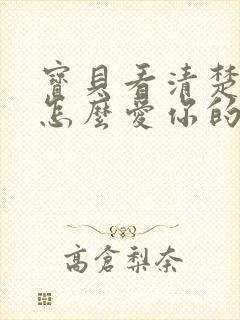 寶貝看清楚
怎麼愛你的
高倉梨奈